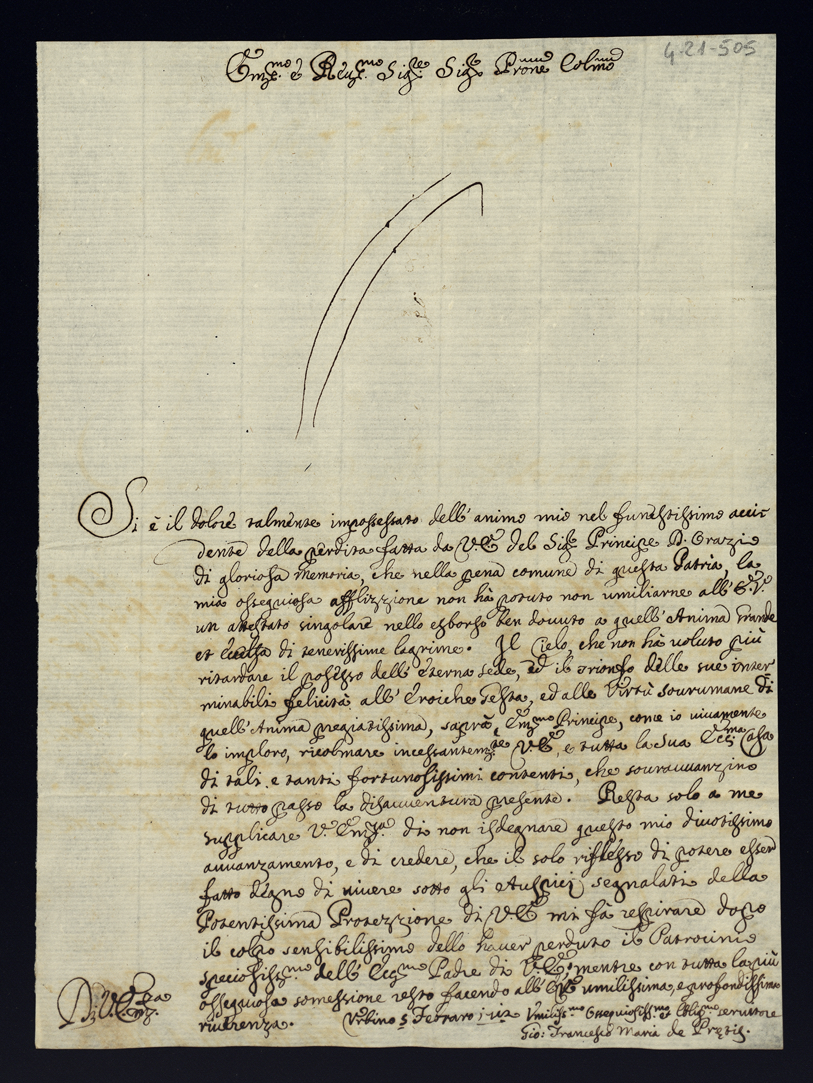 4-21-505
Em.mo e Re.mo Sig.re Sig.re Prone Colmo
Si è il dolore talmente impossessato dell'animo mio nel funestissimo acci-
dente della perdita fatta da V.E. del Sig.r Principe D. Orazio
di gloriosa memoria, che nella pena comune di questa Patria, la
mia ossequiosa afflizzione non hà potuto non umiliarne all'E.V.
un attestato singolare nello esborso ben dovuto a quell'Anima Grande
et di tenerissime lagrime. Il Cielo, che non hà voluto più
ritardare il possesso dell'Eterna Sede, ed il Trionfo delle sue inter-
minabili felicità all'Eroiche Gesta, ed alle Virtù sourumane di
quell'Anima pregiatissima, saprà, Em.mo Principe, come io vivamente
lo imploro, ricolmare incessantem.te V.E. e tutta la Sua Ecc.ma Casa
di tali e tanti fortunosissimi contenti, che souravvanzino
di tutto passo la disavventura presente. Resta solo a me
supplicare V. Em.za di non isdegnare questo mio divotissimo
avvanzamento, e di credere, che il solo riflesso di potere esser
fatto degno di vivere sotto gli Auspicij segnalati della
Potentissima Protezzione di V.E. mi fà respirare dopo
il colpo sensibilissimo dello haver perduto il Patrocinio
speciosiss.mo dell'Ecc.mo Padre di V.E. mentre con tutta la più
ossequiosa somessione resto facendo all'E.V. umilissima, e profondissima
riverenza.
Di V. Em.za
Urbino 5 Febraro 1712
Umiliss.mo Ossequiosiss.mo et Oblig.mo servitore
Gio: Francesco Maria de Pretis.